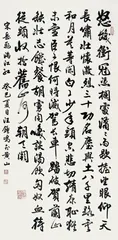 怒髮衝冠憑欄處瀟瀟雨歇抬望眼仰天
長嘯壯懷激烈三十功名塵與土八千里路雲和
月莫等閒白了少年頭空悲切靖康恥猶未雪臣
子恨何時滅駕長車踏破賀蘭山缺
壯志飢餐胡虜肉笑談渴飲匈奴血
待從頭收拾舊山河朝天闕
宋岳飛滿江紅 癸巳夏月汪鐘鳴於黃山